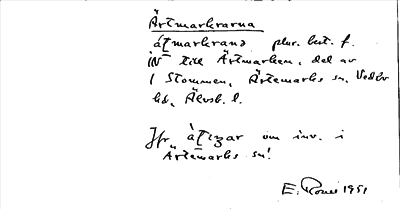 Ärtmarkrarna
àt̯markranạ plur. best. f.
inv till Ärtmarken, del av
1 Stommen, Ärtemarks sn, Vedbo
hd, Älvsb. l.
Jfr àt̯izar om inv. i
Ärtemarks sn!
E. 1951